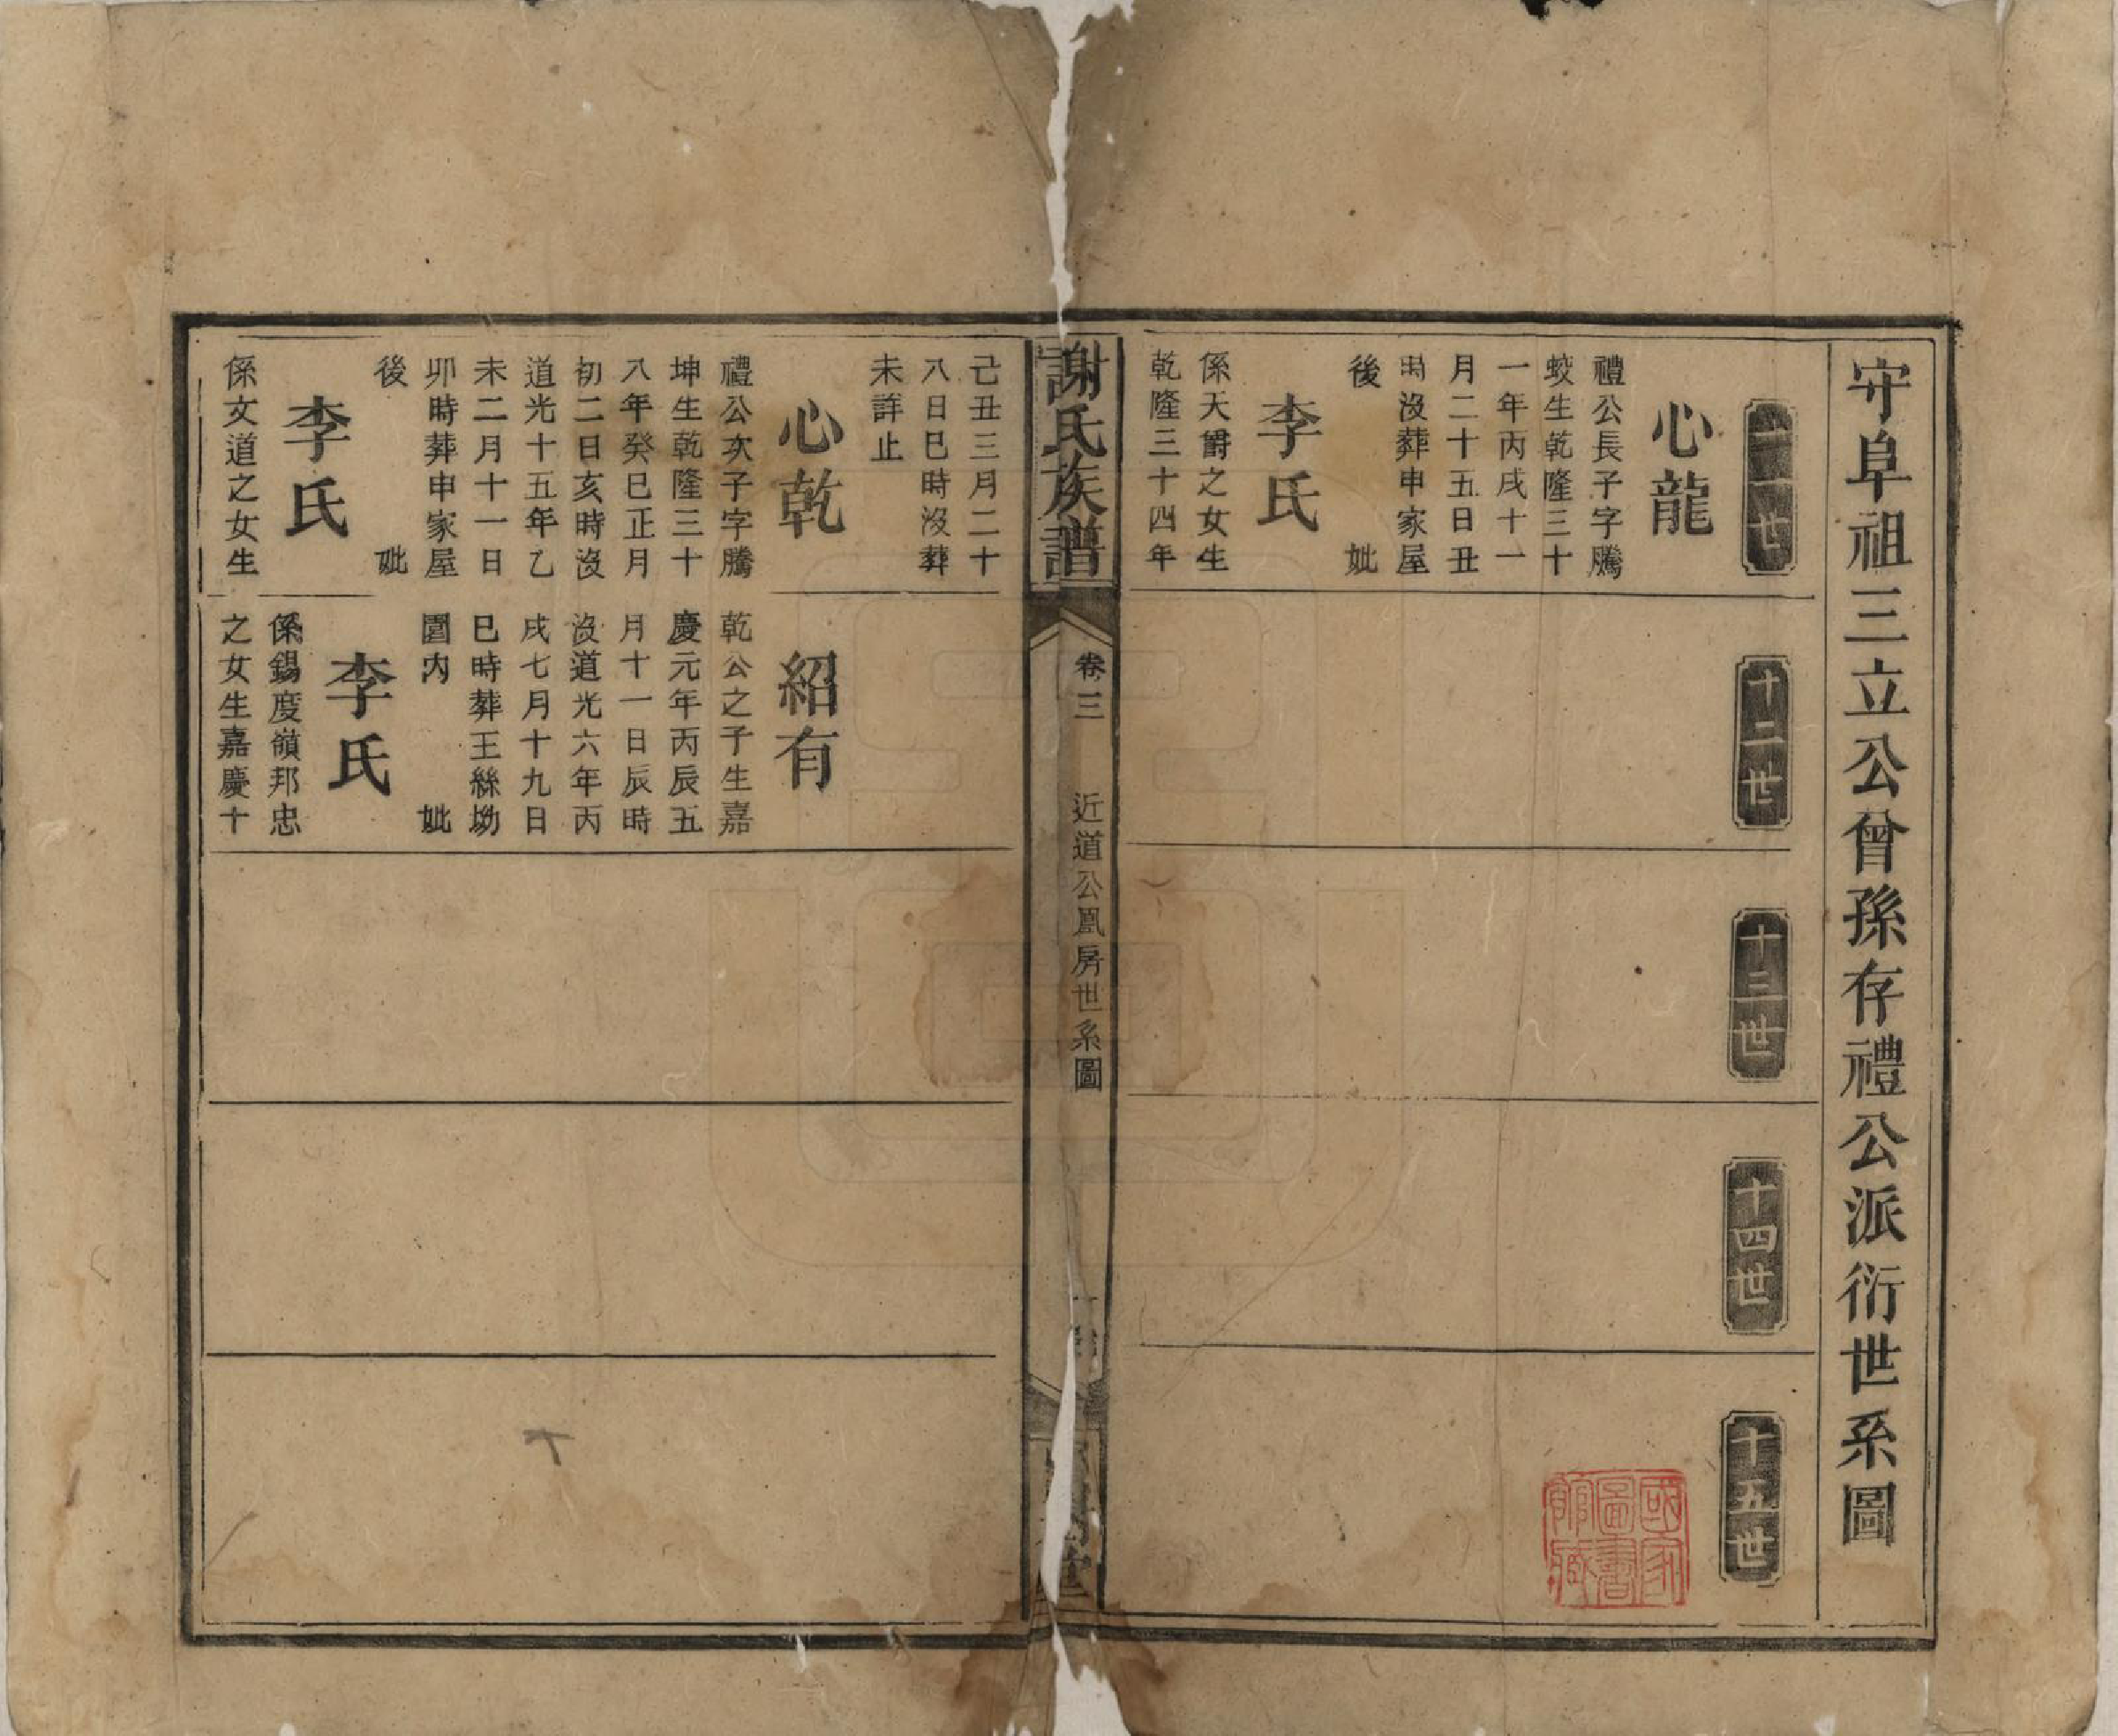 守阜祖三立公曾孫存禮公派衍世系圖
十一世
十二世
十三世
十四世
十五世
心龍
禮公長子字騰
蛟生乾隆三十
一年丙戌十一
月二十五日丑
時沒葬申家屋
後 妣
李氏
係天爵之女生
乾隆三十四年
謝氏族譜
卷三
近道公鳳房世系圖
堂
己丑三月二十
八日巳時沒葬
未詳止
心乾
禮公次子字騰
坤生乾隆三十
八年癸巳正月
初二日亥時沒
道光十五年乙
未二月十一日
卯時葬申家屋
後 妣
李氏
係文道之女生
紹有
乾公之子生嘉
慶元年丙辰五
月十一日辰時
沒道光六年丙
戌七月十九日
巳時葬王絲坳
圍內 妣
李氏
係錫度嶺邦忠
之女生嘉慶十
國家
圖書
館藏